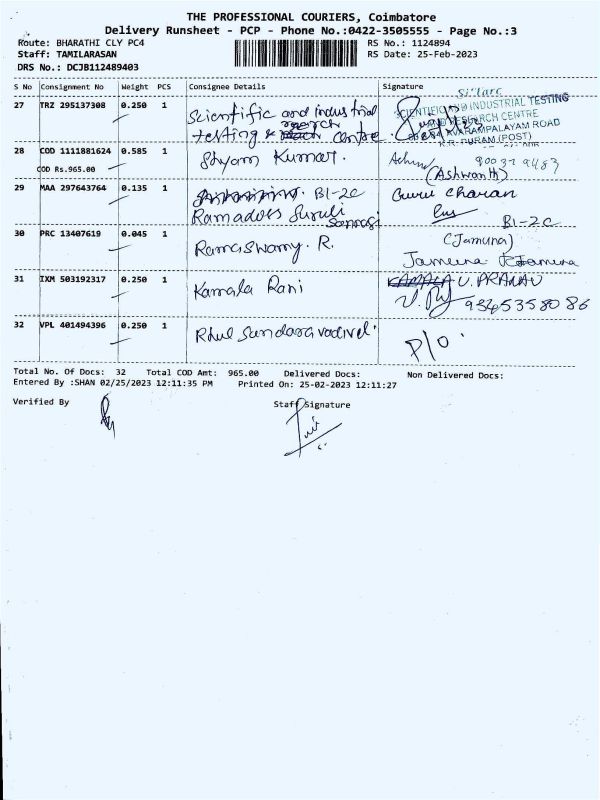 THE PROFESSIONAL COURIERS, Coimbatore
Delivery Runsheet - PCP - Phone No.:0422-3505555 - Page No.:3
Route: BHARATHI CLY PC4 RS No.: 1124894
Staff: TAMILARASAN RS Date: 25-Feb-2023
DRS No.: DCJB112489403
S No Consignment No Weight PCS Consignee Details Signature
27 TRZ 295137308 0.250 1 Scientific and industrial
research
testing & centre.
Si'tarc
SCIENTIFIC AND INDUSTRIAL TESTING
AND RESEARCH CENTRE
AVARAMPALAYAM ROAD
K.R. PURAM (POST)
28 COD 1111881624 0.585 1 Shyam Kumar.
COD Rs.965.00 (Ashwanth)
29 MAA 297643764 0.135 1 B1-2C Guru charan
Ramadoss Suruli
B1-2C
30 PRC 13407619 0.045 1 Ramaswamy. R. (Jamuna)
Jamuna
31 IXM 503192317 0.250 1 Kamala Rani KAMALA U. PRANAV
9345358086
32 VPL 401494396 0.250 1 Sundaravadivel. P/O.
Total No. Of Docs: 32 Total COD Amt: 965.00 Delivered Docs: Non Delivered Docs:
Entered By :SHAN 02/25/2023 12:11:35 PM Printed On: 25-02-2023 12:11:27
Verified By Staff Signature